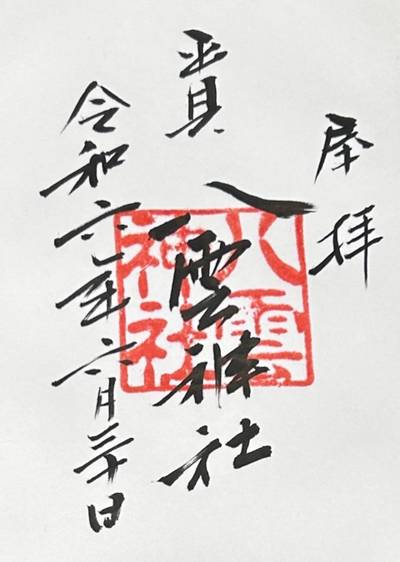 奉拝
八雲神社
令和六年六月三十日
八雲
神社